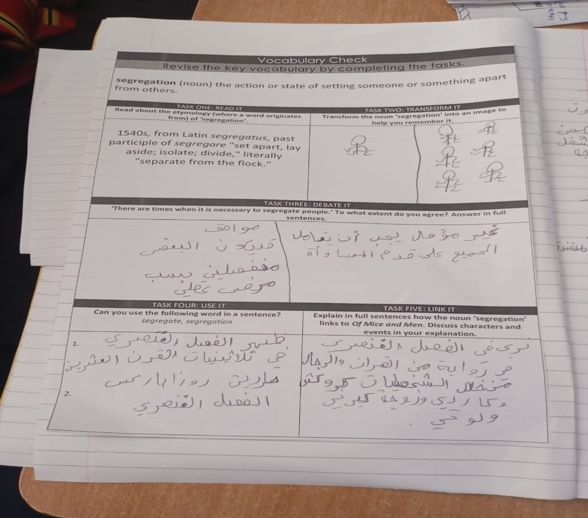 Vocabulary Check
Revise the key vocabulary by completing the tasks.
segregation (noun) the action or state of setting someone or something apart
from others.
TASK ONE: READ IT
Read about the etymology (where a word originates
from) of 'segregation'.
1540s, from Latin segregatus, past
participle of segregare "set apart, lay
aside; isolate; divide," literally
"separate from the flock."
TASK TWO: TRANSFORM IT
Transform the noun 'segregation' into an image to
help you remember it.
TASK THREE: DEBATE IT
'There are times when it is necessary to segregate people.' To what extent do you agree? Answer in full
sentences.
موافق
قد يكون البعض
منفصلين بسبب
مرض
غير يجب أن يعامل
الجميع على قدم المساواة
TASK FOUR: USE IT
Can you use the following word in a sentence?
segregate, segregation
1.
ظهر الفصل العنصري
في ثلاثينيات القرن العشرين
روزا باركس
2.
الفصل العنصري
TASK FIVE: LINK IT
Explain in full sentences how the noun 'segregation'
links to Of Mice and Men. Discuss characters and
events in your explanation.
نرى في الفصل العنصري
في رواية من الفئران والرجال
من خلال الشخصيات كروكس
وكاندي وزوجة كيرلي